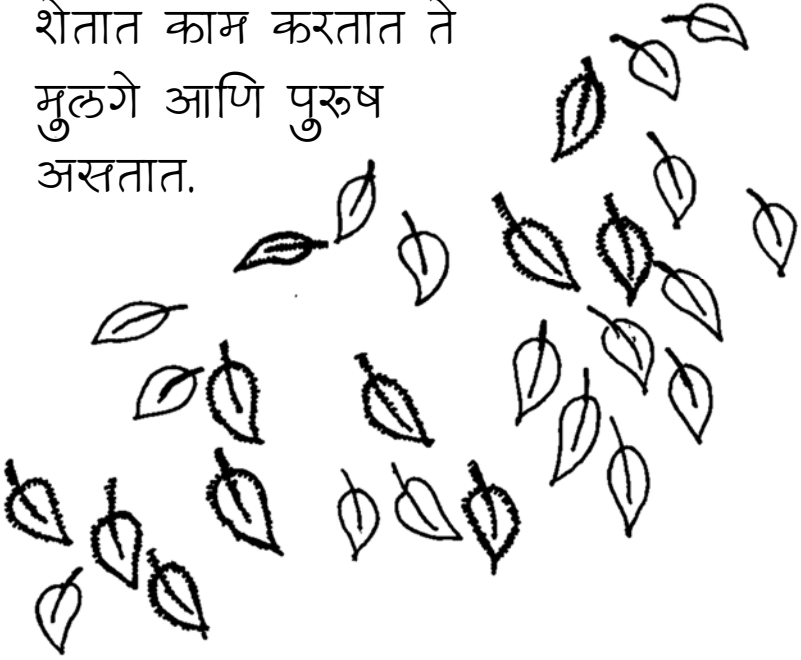 शेतात काम करतात ते
मुलगे आणि पुरुष
असतात.